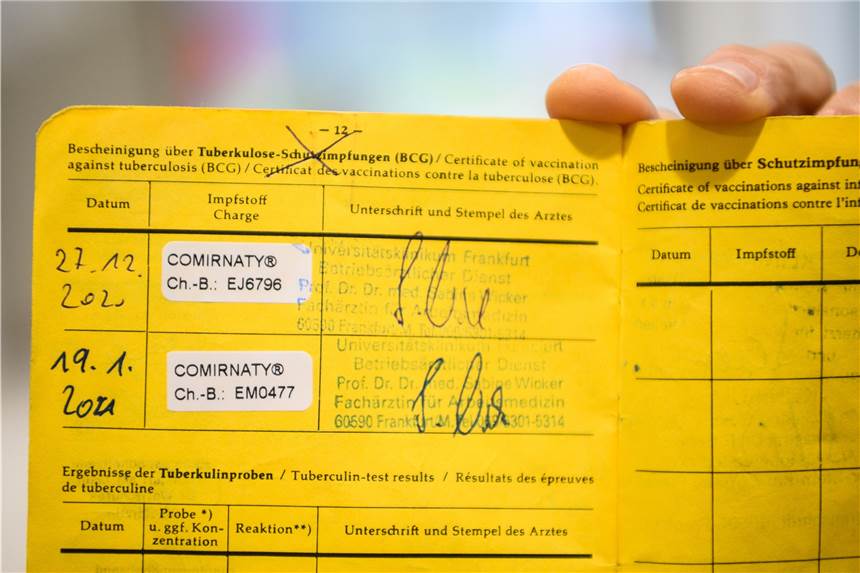 – 12 –
Bescheinigung über Tuberkulose-Schutzimpfungen (BCG) / Certificate of vaccination
against tuberculosis (BCG) / Certificat des vaccinations contre la tuberculose (BCG).
Datum
Impfstoff
Charge
Unterschrift und Stempel des Arztes
27.12.
2020
COMIRNATY®
Ch.-B.: EJ6796
Universitätsklinikum Frankfurt
Betriebsärztlicher Dienst
Prof. Dr. Dr. med. Sabine Wicker
Fachärztin für Arbeitsmedizin
60590 Frankfurt/M. Tel.
19.1.
2021
COMIRNATY®
Ch.-B.: EM0477
Universitätsklinikum Frankfurt
Betriebsärztlicher Dienst
Prof. Dr. Dr. med. Sabine Wicker
Fachärztin für Arbeitsmedizin
60590 Frankfurt/M. Tel. 069 6301-6314
Ergebnisse der Tuberkulinproben / Tuberculin-test results / Résultats des épreuves
de tuberculine
Datum
Probe *)
u. ggf. Kon-
zentration
Reaktion**)
Unterschrift und Stempel des Arztes
Bescheinigung über Schutzimpfun
Certificate of vaccinations against inf
Certificat de vaccinations contre l'inf
Datum
Impfstoff
Do